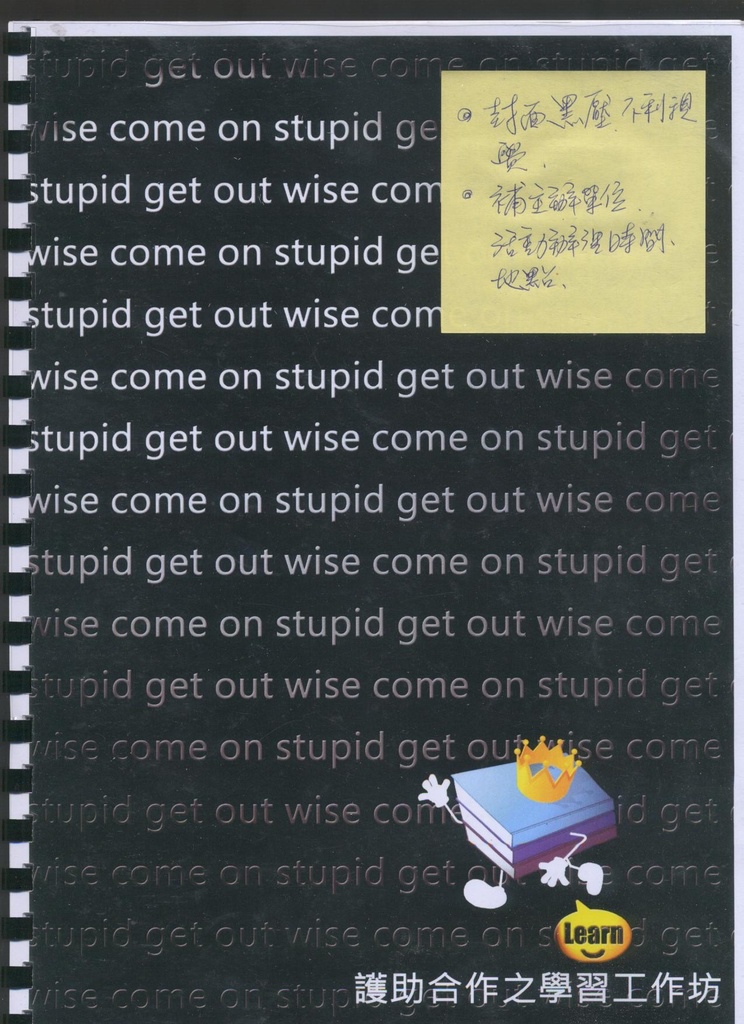 stupid get out wise come on stupid get
wise come on stupid ge
stupid get out wise com
wise come on stupid ge
stupid get out wise com
wise come on stupid get out wise come
stupid get out wise come on stupid get
wise come on stupid get out wise come
stupid get out wise come on stupid get
wise come on stupid get out wise come
stupid get out wise come on stupid get
wise come on stupid get out wise come
stupid get out wise com id get
wise come on stupid get out wise come
stupid get out wise come on st d get
wise come on stupid get out wise come
◎ 封面黑壓不利視
覺.
◎ 補主辦單位.
活動辦理時間、
地點、
Learn
護助合作之學習工作坊